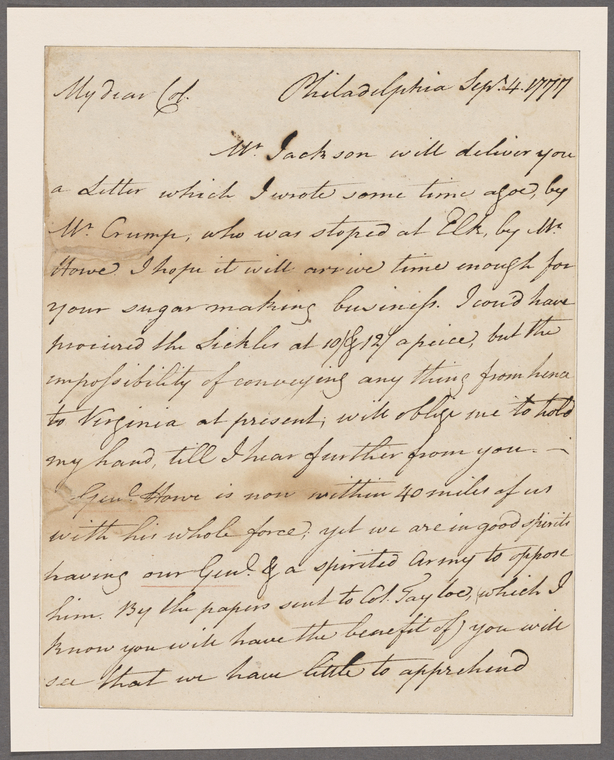 My dear Col. Philadelphia Sepr. 4. 1777
Mr. Jackson will deliver you
a Letter which I wrote some time agoe, by
Mr. Crump, who was stoped at Elk, by Mr.
Howe. I hope it will arrive time enough for
your sugar making business. I cou'd have
procured the Sickles at 10/ & 12/ a peice, but the
impossibility of conveying any thing from hence
to Virginia at present, will oblige me to hold
my hand, till I hear further from you. —
Genl. Howe is now within 40 miles of us
with his whole force; yet we are in good spirits
having our Genl. & a spirited Army to oppose
him. By the papers sent to Col. Tayloe, (which I
know you will have the benefit of) you will
see that we have little to apprehend